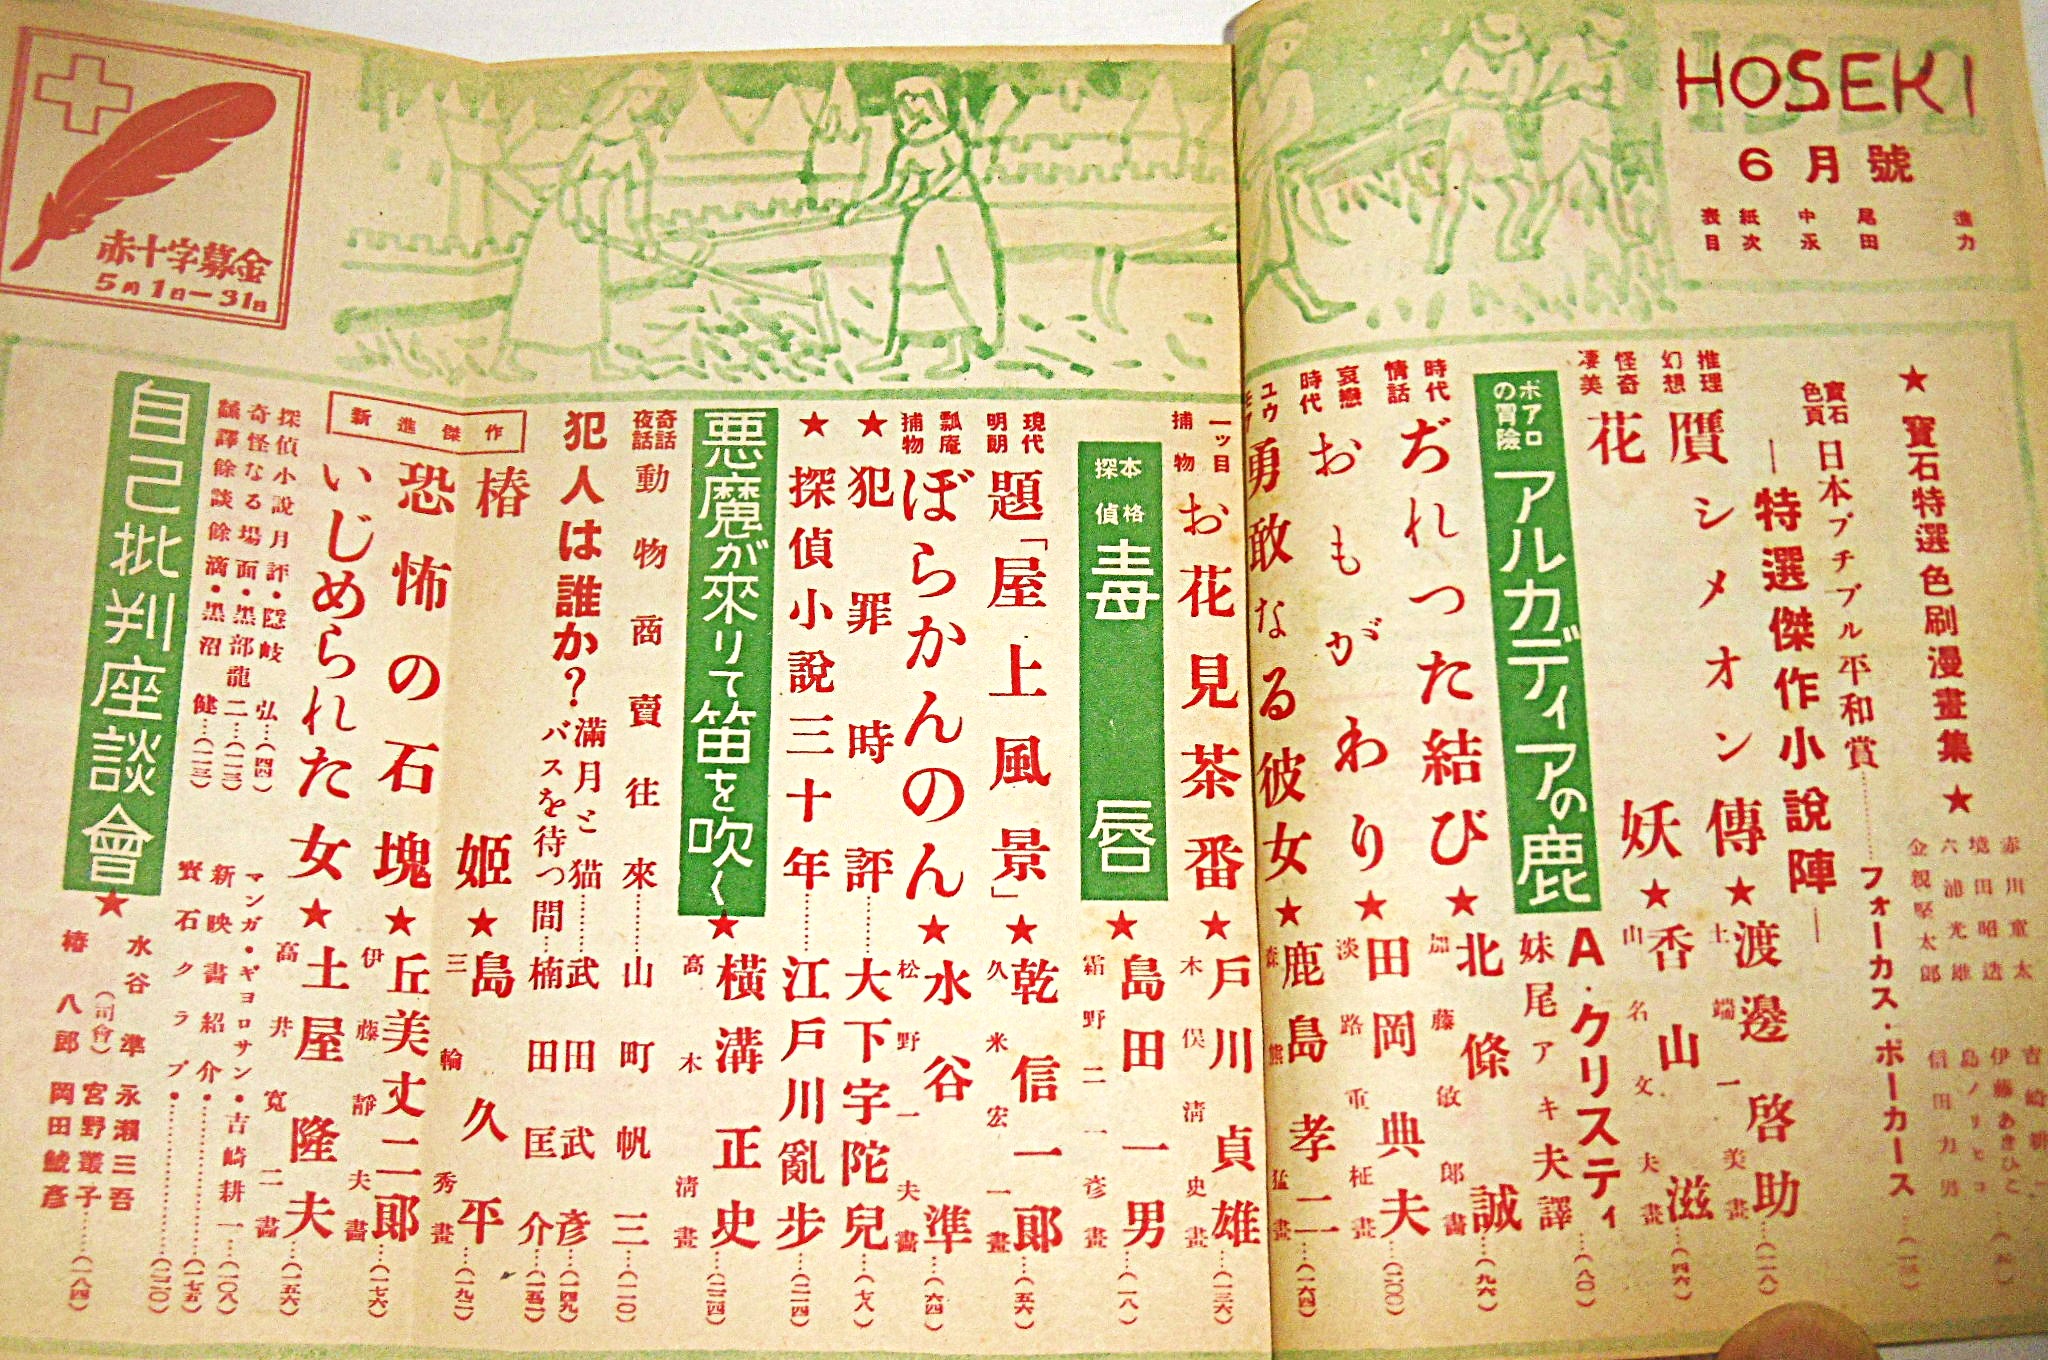 HOSEKI
1952
6月號
表紙 中尾進
目次 永田力
★寶石特選色刷漫畫集★
赤川童太
境田昭造
六浦光雄
金親堅太郎
伊藤あきひと
島ノリヒコ
信田力男
寶石色頁
日本プチブル平和賞……フォーカス・ポーカース
―特選傑作小說陣―
推理幻想
贋シメオン傳★渡邊啓助…(一一八)
土端一美畫
怪奇凄美
花妖★香山滋…(四六)
山名文夫畫
ポアロの冒險
アルカディアの鹿
A・クリスティ
妹尾アキ夫譯…(八〇)
時代情話
ぢれつた結び★北條誠…(九六)
加藤敏郎畫
哀戀時代
おもがわり★田岡典夫…(二〇〇)
淡路重柾畫
ユウモア
勇敢なる彼女★鹿島孝二…(一六四)
森熊猛畫
一ッ目捕物
お花見茶番★戸川貞雄…(一三六)
木俣淸史畫
本格探偵
毒唇★島田一男…(一八)
霜野二一彦畫
現代明朗
題「屋上風景」★乾信一郞…(五六)
久米宏一畫
瓢庵捕物
ぼらかんのん★水谷準…(六四)
松野一夫畫
★犯罪時評……大下宇陀兒…(七八)
★探偵小說三十年……江戸川亂步…(二一四)
悪魔が來りて笛を吹く★橫溝正史…(二二四)
高木淸畫
奇話夜話
動物商賣往來……山町帆三…(一一〇)
犯人は誰か?
満月と猫……武田武彥…(一四九)
バスを待つ間…楠田匡介…(一五二)
新進傑作
椿姬★島久平…(一九二)
三輪秀畫
恐怖の石塊★丘美丈二郎…(一七六)
伊藤靜夫畫
いじめられた女★土屋隆夫…(一五六)
高井寬二畫
探偵小說月評・隱岐弘…(四四)
奇怪なる場面・黑部龍二…(一一三)
飜譯餘談餘滴・黑沼健…(一一三)
マンガ・ギョロサン・吉崎耕一…(一〇八)
新映畫紹介・……(一七五)
寶石クラブ・……(二二〇)
自己批判座談會★
水谷準(司會)
椿八郎
永瀨三吾
宮野叢子
岡田鯱彦
…(一八四)
赤十字募金
5月1日―31日